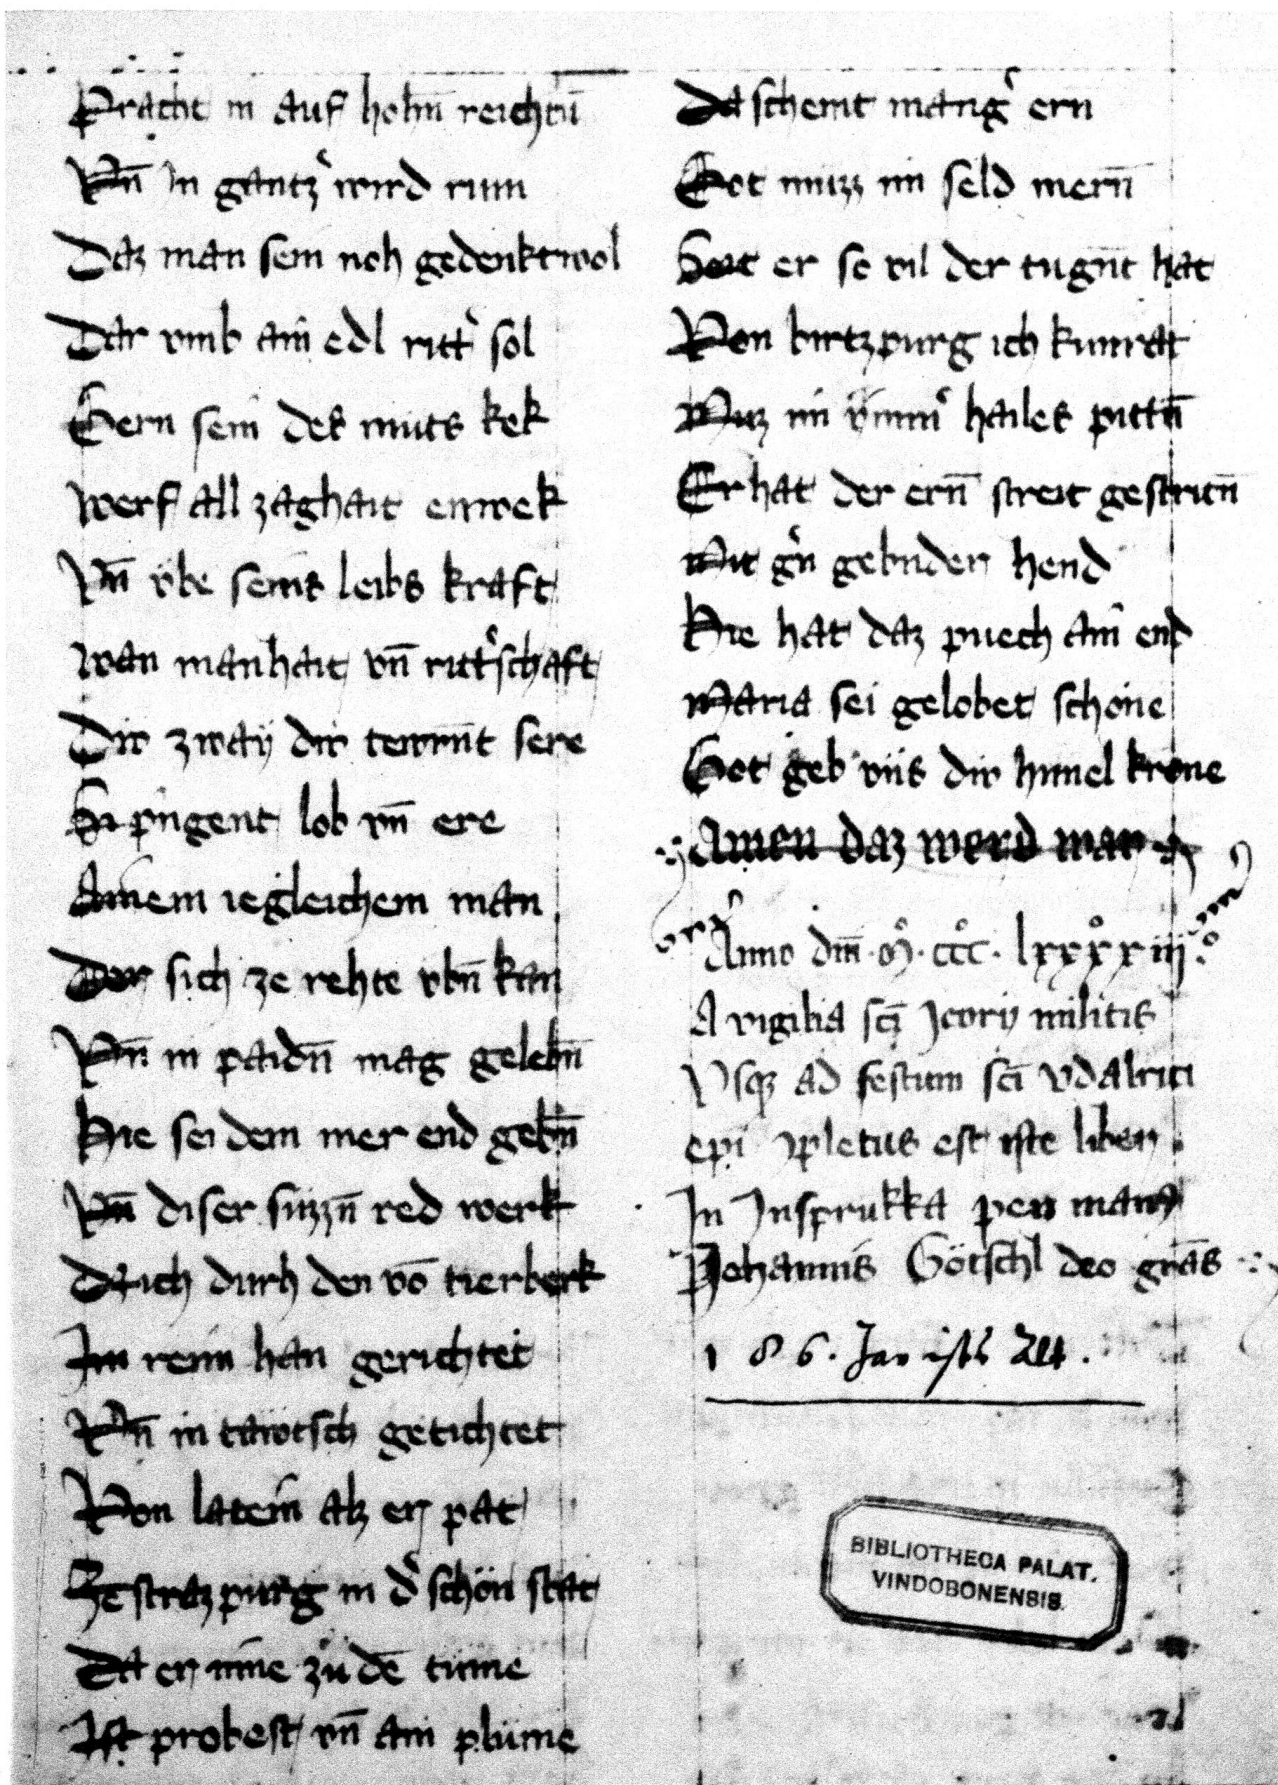 Pracht in auf hohn̄ reichtū
Vn̄ in gantz' wird rum
Daz man sein noh gedenkt wol
Dar vmb ain edl ritt' sol
Gern sein des muts kek
Werf all zaghait enwek
Vn̄ vbe seins leibs kraft
wan manhait vn̄ ritt'schaft
Div zway dir tewrnt sere
Si pringent lob vn̄ ere
Ainem iegleichem man
Der sich ze rehte vbn̄ kan
Vn̄ in paidn̄ mag gelebn̄
Hie sei dem mer end gebn̄
Vn̄ diser süzzn̄ red werk
Daz ich durh den vō tierberk
Im reim han gerichtet
Vn̄ in tawtsch getichtet
Von latein alz er pat
Ze strazpurg in d' schön stat
Da er nine zů dē tume
Ist probest vn̄ ain plume
Da scheint mang' ern
Got muzz im seld mern̄
Seit er so vil der tugnt hat
Von birtzpurg ich kunrat
Muz im ymm' hailes pittn̄
Er hat der ern̄ streit gestritn̄
Mit g'n gebnder hend
Hie hat daz puech ain end
Maria sei gelobet schone
Got geb vns div himel krone
Amen daz werd war
Anno dm̄ · M° · ccc° · lxxxxiij°
A vigilia scī Jeorij militis
Vsqz ad festum scī vdalrici
epī ꝯpletus est iste liber
In Insprukka per manꝰ
Johannis Götschl deo grās
186 · Jar ists Alt.
BIBLIOTHECA PALAT.
VINDOBONENSIS.